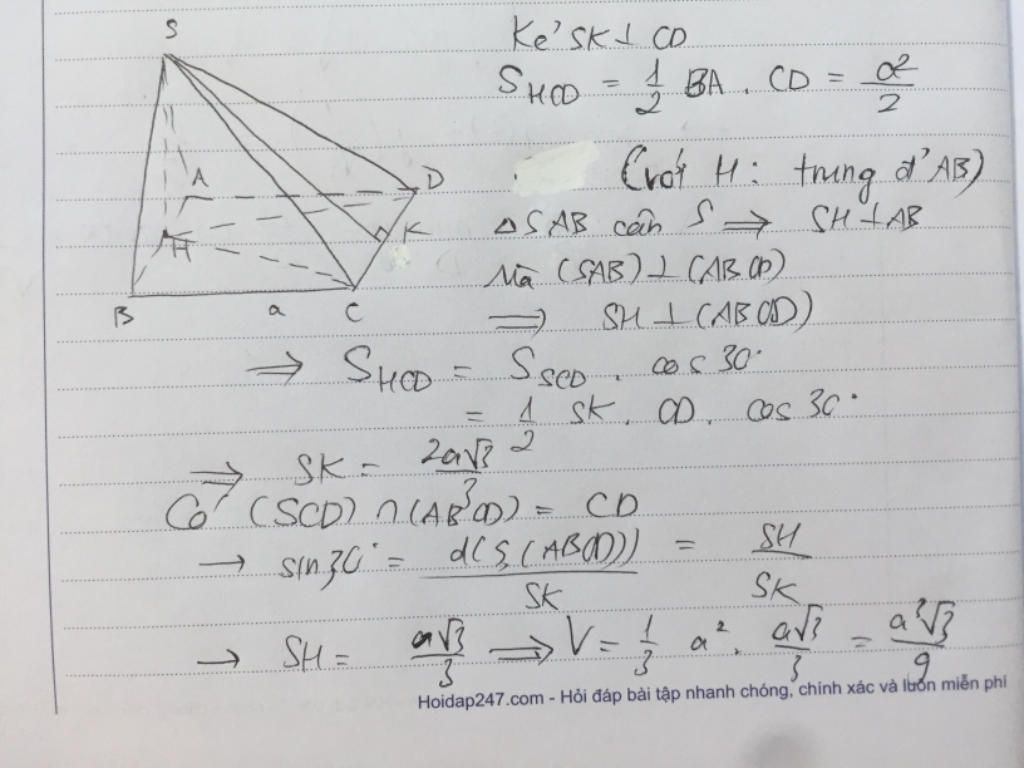 S
A
D
H
K
B
a
C
Kẻ SK ⊥ CD
S_HCD = 1/2 BA . CD = a²/2
(với H : trung đ' AB)
Δ SAB cân S ⟹ SH ⊥ AB
Mà (SAB) ⊥ (ABCD)
⟹ SH ⊥ (ABCD)
⟹ S_HCD = S_SCD . cos 30°
= 1/2 SK . CD . cos 30°
⟹ SK = 2a√3/3
Có (SCD) ∩ (ABCD) = CD
→ sin 30° = d(S, (ABCD))/SK = SH/SK
→ SH = a√3/3 ⟹ V = 1/3 a² . a√3/3 = a³√3/9
Hoidap247.com - Hỏi đáp bài tập nhanh chóng, chính xác và luôn miễn phí